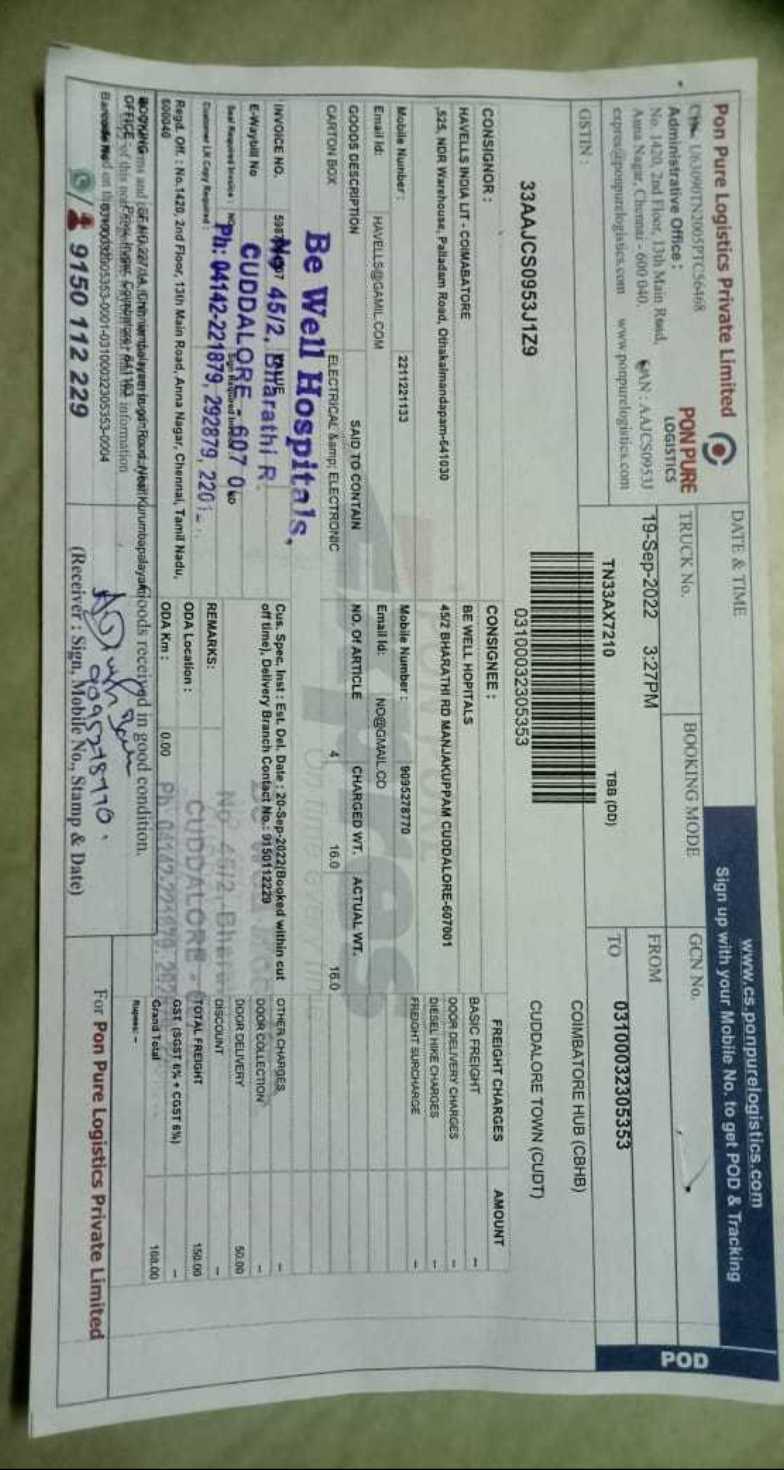 Pon Pure Logistics Private Limited
U63090TN2005PTC56468
Administrative Office :
No. 1420, 2nd Floor, 13th Main Road,
Anna Nagar, Chennai - 600 040.
PAN : AAJCS0953J
expres@ponpurelogistics.com www.ponpurelogistics.com
PON PURE
LOGISTICS
www.cs.ponpurelogistics.com
Sign up with your Mobile No. to get POD & Tracking
POD
DATE & TIME
19-Sep-2022 3:27PM
TRUCK No.
TN33AX7210
BOOKING MODE
TBB (DD)
GCN No.
03100032305353
FROM
COIMBATORE HUB (CBHB)
TO
CUDDALORE TOWN (CUDT)
GSTIN :
33AAJCS0953J1Z9
03100032305353
CONSIGNOR :
HAVELLS INDIA LIT - COIMABATORE
,525, NDR Warehouse, Palladam Road, Othakalmandapam-641030
Mobile Number : 2211221133
Email Id: HAVELLS@GAMIL.COM
CONSIGNEE :
BE WELL HOPITALS
45/2 BHARATHI RD MANJAKUPPAM CUDDALORE-607001
Mobile Number : 9095278770
Email Id: NO@GMAIL.CO
GOODS DESCRIPTION SAID TO CONTAIN NO. Of ARTICLE CHARGED WT. ACTUAL WT.
CARTON BOX ELECTRICAL &amp; ELECTRONIC 4 16.0 16.0
FREIGHT CHARGES AMOUNT
BASIC FREIGHT --
DOOR DELIVERY CHARGES --
DIESEL HIKE CHARGES --
FREIGHT SURCHARGE --
OTHER CHARGES --
DOOR COLLECTION --
DOOR DELIVERY 50.00
DISCOUNT --
TOTAL FREIGHT 150.00
GST (SGST 6% + CGST 6%) --
Grand Total 168.00
Rupees: --
INVOICE NO.
VALUE
E-Waybill No
Seal Required Invoice : NO
Customer LR Copy Required :
Be Well Hospitals,
No 45/2, Bharathi R
CUDDALORE - 607 0
Ph: 04142-221879, 292879, 2201
Cus. Spec. Inst : Est. Del. Date : 20-Sep-2022(Booked within cut
off time), Delivery Branch Contact No.: 9150112229
REMARKS:
ODA Location :
ODA Km : 0.00
No. 45/2, Bhara
CUDDALORE -
Ph 04142-221879, 292
Regd. Off. : No.1420, 2nd Floor, 13th Main Road, Anna Nagar, Chennai, Tamil Nadu,
600040
BOOKING
OFFICE
Barcode No
9150 112 229
Goods received in good condition.
9095278770
(Receiver : Sign, Mobile No., Stamp & Date)
For Pon Pure Logistics Private Limited